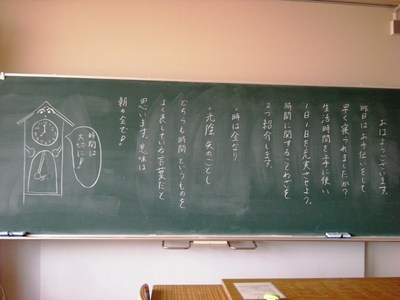 おはようございます。
昨日はお手伝いをして
早く寝られましたか？
生活時間を上手に使い
1日1日を充実させよう。
時間に関することわざを
2つ紹介します。
"時は金なり
"光陰 矢のごとし
どちらも時間というものを
よく表している言葉だと
思います。意味は
朝の会で!
時間は
大切に!!